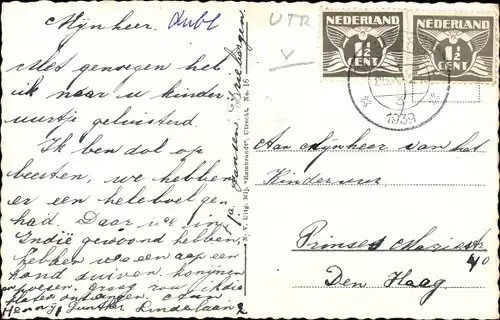 Mijnheer.
dubl
UTR
V
Met genoegen heb
ik naar u kinder
uurtje geluisterd.
Ik ben dol op
beesten, we hebben
er een heleboel ge-
had. Daar we in
Indië gewoond hebben,
hebben we een aap een
hond duiven konijnen
poesen. graag zou ik die
platen ontvangen. Aan
Henri
Lindelaan 2
Driebergen
N. V. Uitg. Mij. "Rembrandt", Utrecht. No. 16
NEDERLAND
1½
CENT
NEDERLAND
1½
CENT
1939
Aan Mijnheer van het
Kinderuur
Prinses Mariestr
40
Den Haag